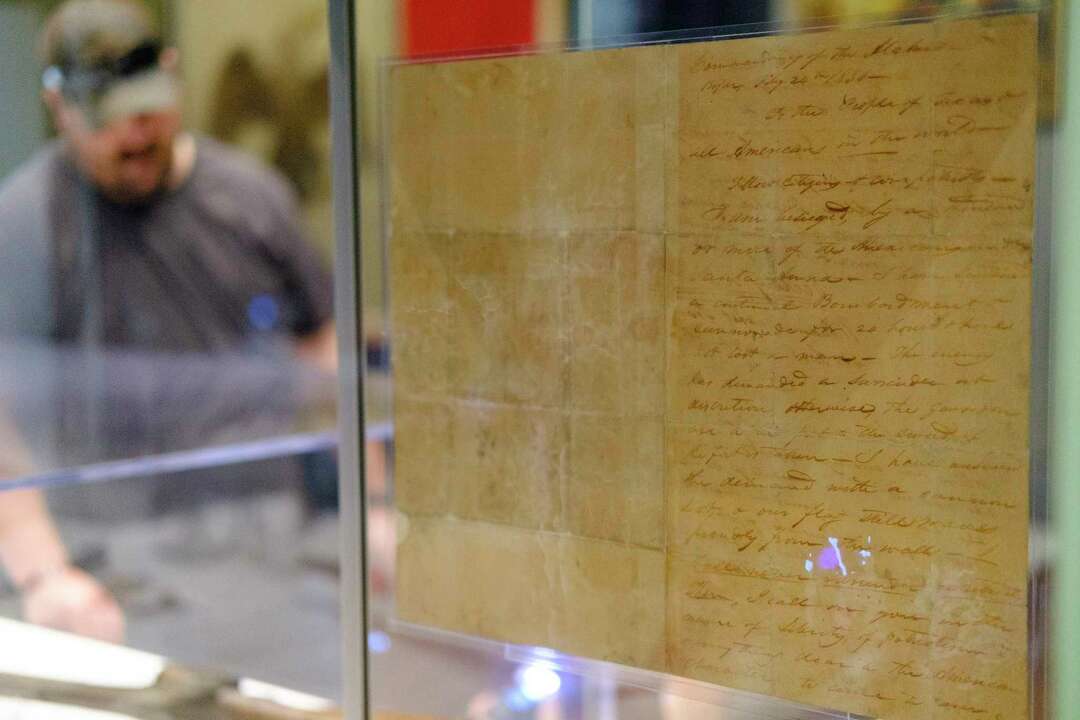 Commandancy of the Alamo
Feby 24th 1836
To the People of Texas &
all Americans in the world
Fellow citizens & compatriots
I am besieged, by a thousand
or more of the Mexicans under
Santa Anna – I have sustained
a continual Bombardment &
cannonade for 24 hours & have
not lost a man – The enemy
has demanded a Surrender at
discretion, otherwise, the garrison
are to be put to the sword, if
the fort is taken – I have answered
the demand with a cannon
shot, & our flag still waves
proudly from the walls – I
shall never surrender or retreat
Then, I call on you in the
name of Liberty, of patriotism &
everything dear to the American
character, to come to our